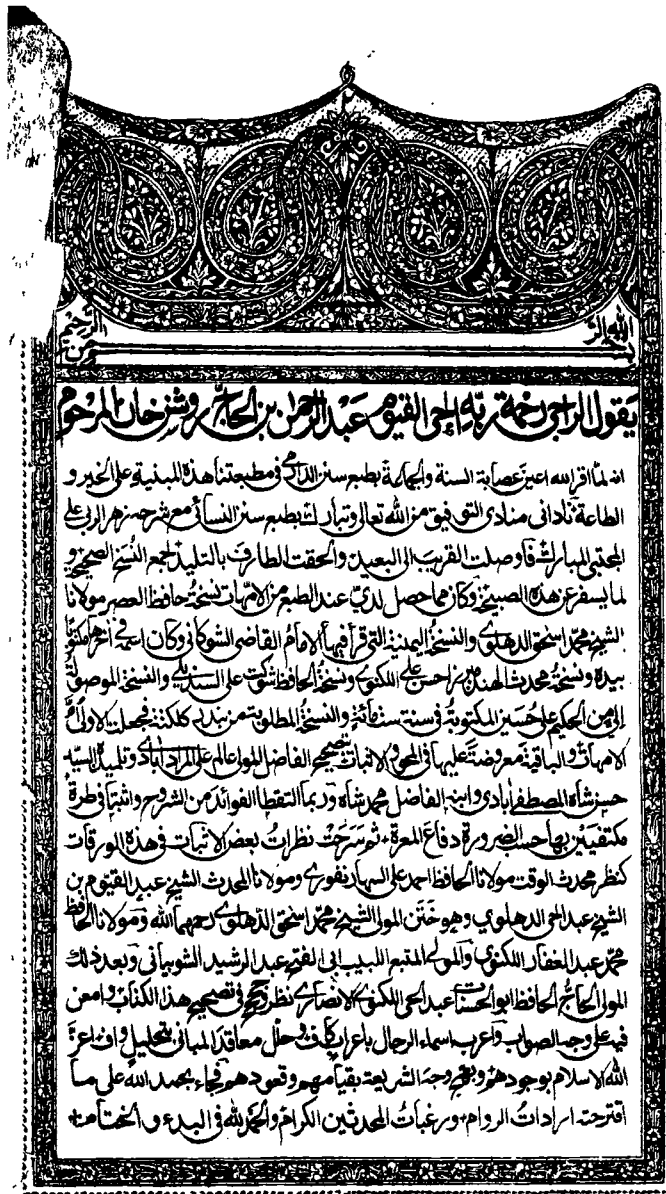 بسم الله الرحمن الرحيم
يقول الراجي رحمة ربه الحي القيوم عبد الرحمن بن الحاج روشن خان المرحوم
انه لما اقر الله اعين عصابة السنة والجماعة بطبع سنن الدارمي في مطبعتنا هذه المبنية على الخير و
الطاعة ناداني منادى التوفيق من الله تعالى وتبارك بطبع سنن النسائي مع شرحه زهر الربى على
المجتبى المبارك فاوصلت القريب الى البعيد والحقت الطارف بالتليد لجمع النسخ الصحيحة و
لما يسفر عن هذه الصبيحة وكان مما حصل لدي عند الطبع من الامهات نسخة حافظ العصر مولانا
الشيخ محمد اسحق الدهلوي والنسخة اليمنية التي قرأ فيها الامام القاضي الشوكاني وكان اسمه في اخرهم مكتوبا
بيده ونسخة محدث الهند ميرزا حسن علي اللكنوي ونسخة الحافظ شوكت علي السنديلي والنسخة الموصولة
الي من الحكيم علي حسين المكتوبة في سنة ستمائة والنسخة المطلوبة من بندر كلكته فجعلت الاولى ام
الامهات والباقية معروضة عليها في المحو والاثبات بتصحيح الفاضل المولى عالم علي المرادابادي وتلميذه السيد
حسن شاه المصطفابادي وابنه الفاضل محمد شاه وربما التقطا الفوائد من الشروح واثبتا في طرة
مكتفيين بها حسب الضرورة دفاع المعرة ثم سرحت نظرات بعض الاثبات في هذه الورقات
كنظر محدث الوقت مولانا الحافظ احمد علي السهارنفوري ومولانا المحدث الشيخ عبد القيوم بن
الشيخ عبد الحي الدهلوي وهو ختن المولى الشيخ محمد اسحق الدهلوي رحمهما الله ومولانا الحافظ
محمد عبد الغفار اللكنوي والمولى المتبع اللبيب ابي الفتح عبد الرشيد الشوبياني وبعد ذلك
المولى الحاج الحافظ ابو الحسنات عبد الحي اللكنوي الانصاري نظر في تصحيح هذا الكتاب وامعن
فيها على وجه الصواب واعرب اسماء الرجال باعراب كاف وحلل معاقد المباني بتحليل واف اعزة
الله الاسلام بوجودهم وبقي وجه الشريعة بقيامهم وقعودهم فجاء بحمد الله على ما
اقترحته ارادات الروام ورغبات المحدثين الكرام والحمد لله في البدء والختام